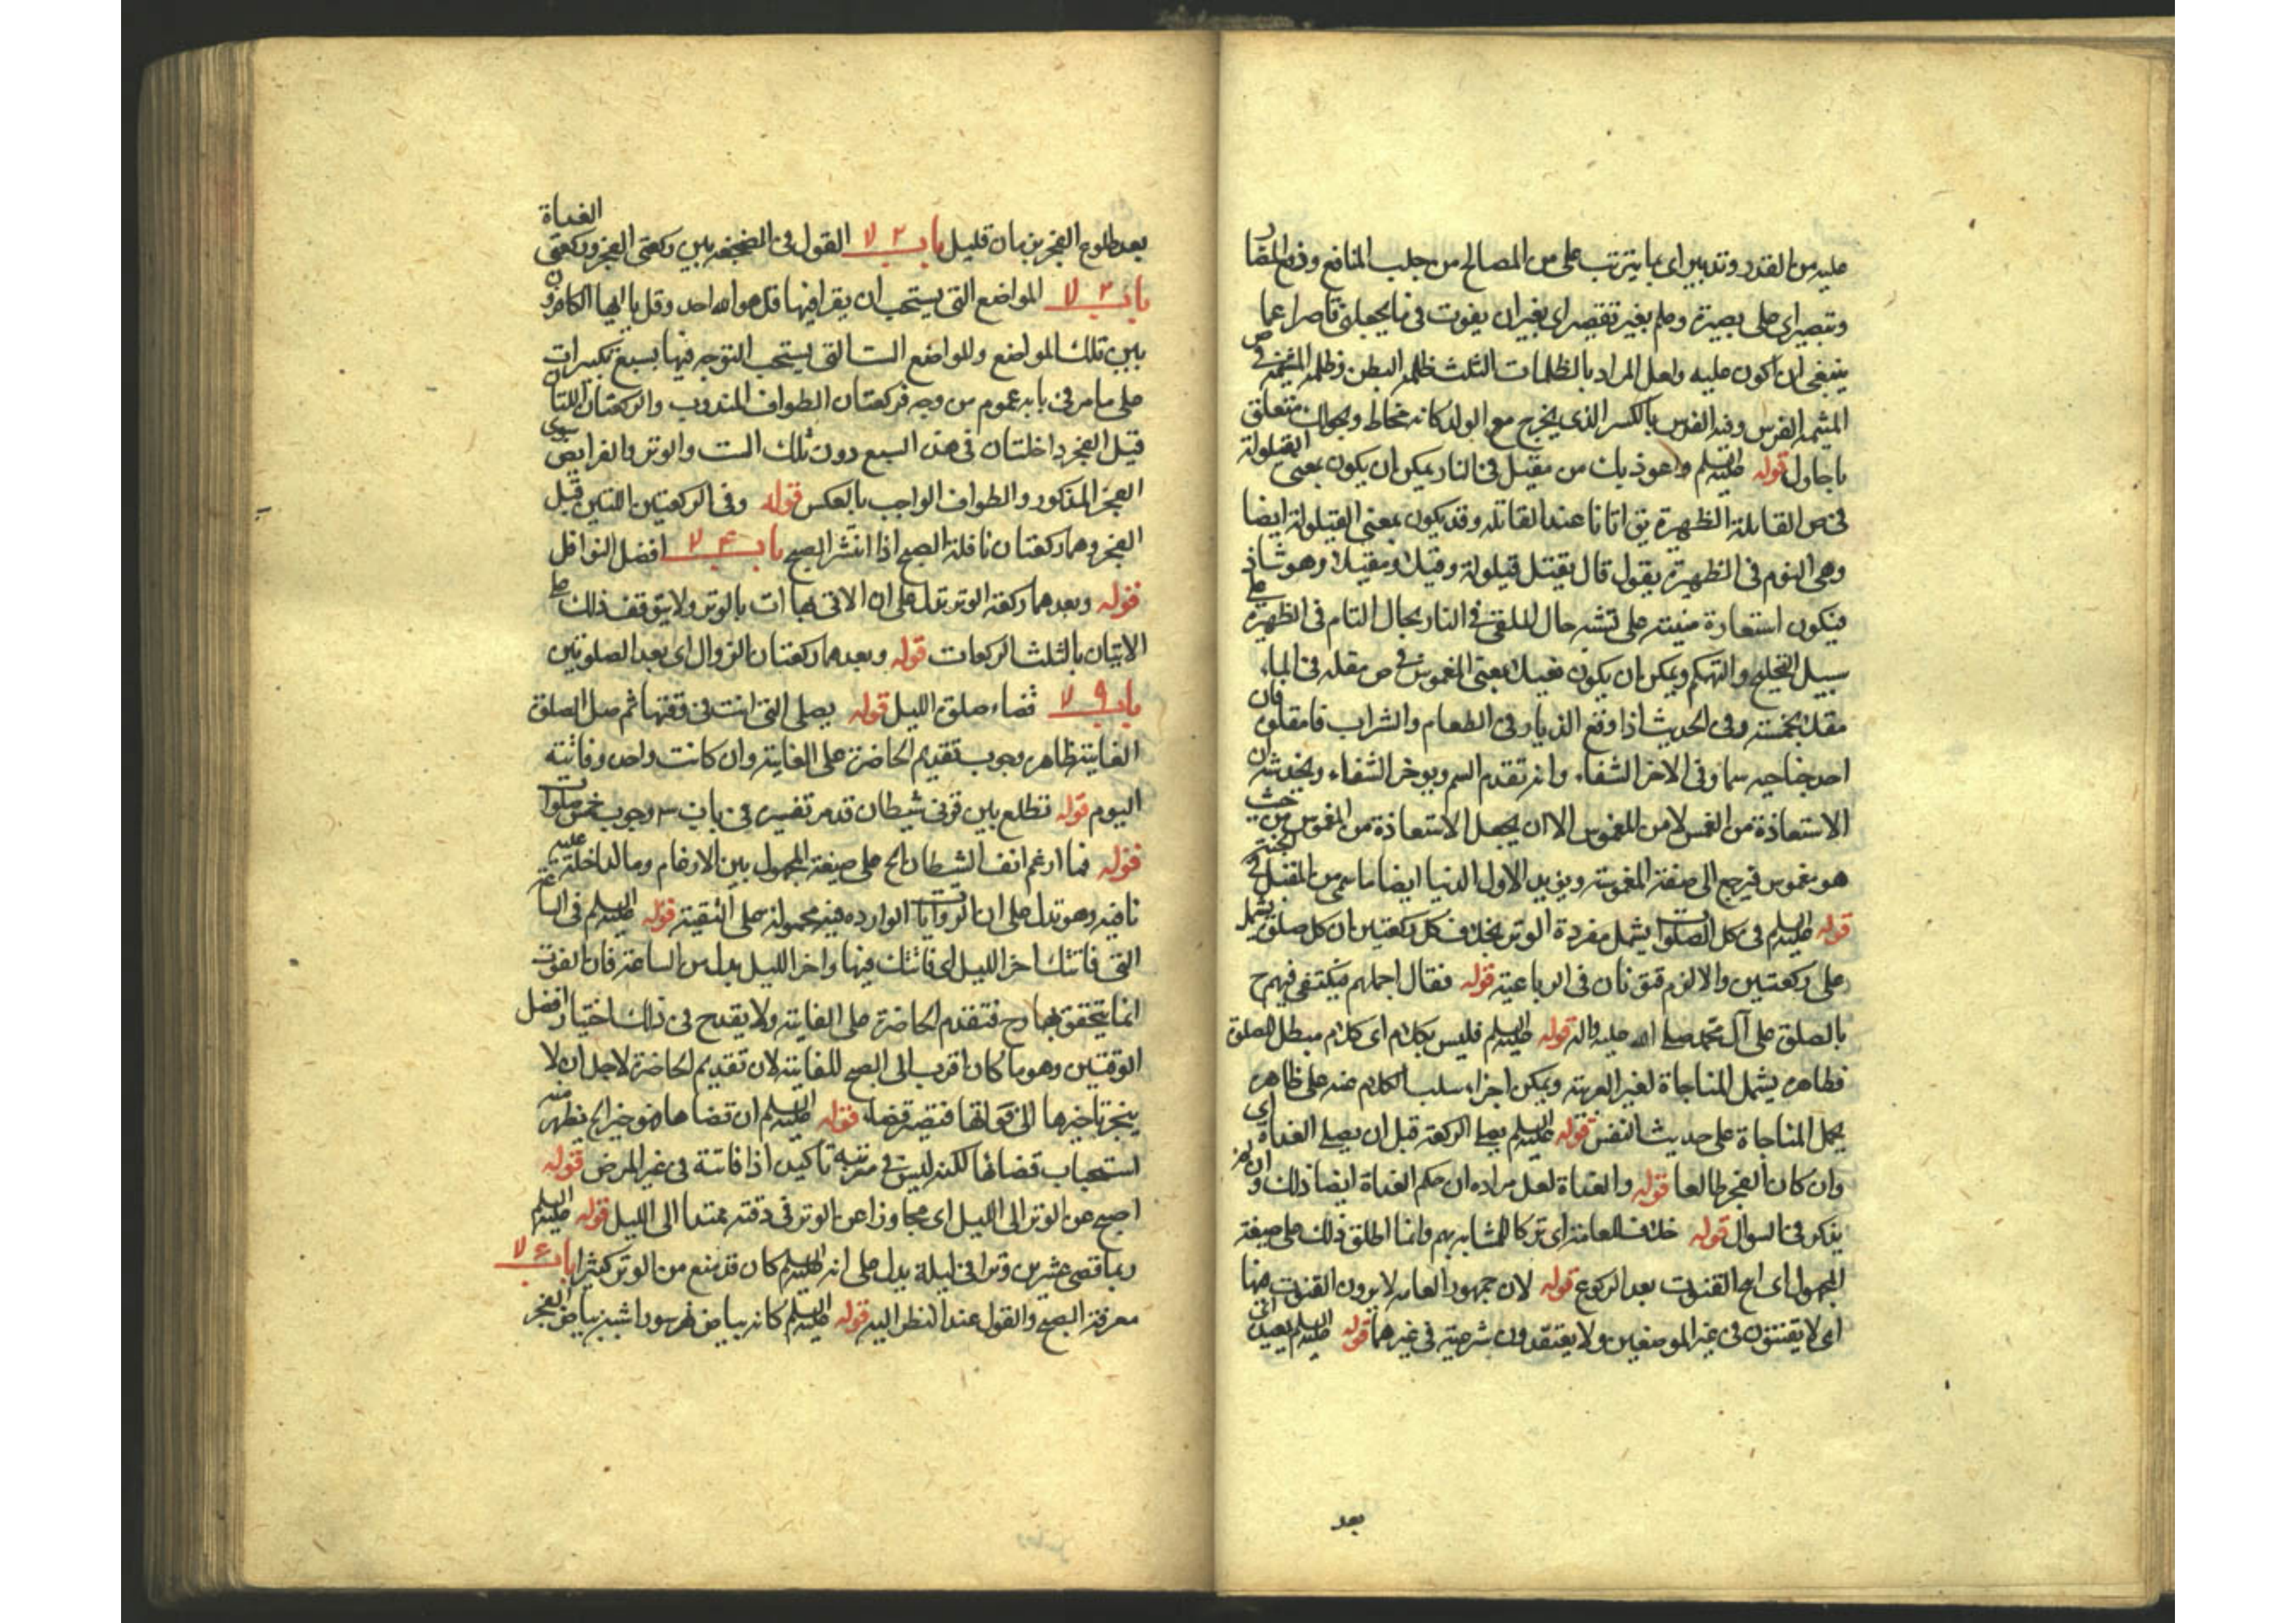 عليه من القدر وتدبير اى بما يترتب على من المصالح من جلب المنافع ودفع المضار
وتبصر اى على بصيرة وعلم بغير تقصير اى بغير ان يفوت فى ما يجعلنى قاصرا عما
ينبغى ان اكون عليه ولعل المراد بالظلمات الثلث ظلمة البطن وظلمة المشيمة
المشيمة الفرس وفيه الفرس بالكسر الذى يخرج مع الولد كانه مخاط ويحولك متعلق
باحاول قوله عليه السلم واعوذ بك من مقيل فى النار يمكن ان يكون بمعنى القيلولة
فى ص القائلة الظهيرة يق اتانا عند القائلة وقد يكون بمعنى القيلولة ايضا
وهى النوم فى الظهيرة يقول قال يقيل قيلولة وقيلا ومقيلا وهو شاذ
فيكون استعارة مبنية على تشبه حال الملقى فى النار بحال النائم فى الظهيرة على
سبيل التمليح والتهكم ويمكن ان يكون فعيلا بمعنى المغموس فى ص مقله فى الماء
مقلا غمسه وفى الحديث اذا وقع الذباب فى الطعام والشراب فامقلوه فان
احد جناحيه سما وفى الاخر الشفاء وانه تقدم السم ويوخر الشفاء ويخدشه ان
الاستعاذة من الغمس لا من المغموس الا ان يجعل الاستعاذة من المغموس من حيث
هو مغموس فيرجع الى صفة المغموسية ويؤيد الاول الدنيا ايضا ما سمى من المقيل فى الجنة
قوله عليه السلم فى كل الصلوات يشمل مفردة الوتر بخلاف كل ركعتين ان كل صلوة يشمل
على ركعتين والا لزم قنوتان فى الرباعية قوله فقال اجملهم فيكتفى فيهم ح
بالصلوة على آل محمد صلى الله عليه واله قوله عليه السلم فليس بكلام اى كلام مبطل للصلوة
فظاهره يشمل المناجاة لغير العربية ويمكن اجراء سلب الكلام عنه على ظاهره
يحمل المناجاة على حديث النفس قوله عليه السلم يصلى الركعة قبل ان يصلى الغداة اى
وان كان الفجر طالعا قوله والغداة لعل مراده ان حكم الغداة ايضا ذلك وان لم
يذكر فى السوال قوله خلاف للعامة اى تركا للمشابه بهم وانما اطلق ذلك على صيغة
المجهول اى القنوت بعد الركوع قوله لان جمهور العامه لا يرون القنوت منها
اى لا يقنتون فى غير الموضعين ولا يعتقدون شرعيته فى غيرهما قوله عليه السلم بعيد
بعد
بعد طلوع الفجر بزمان قليل باب ٢ لا القول فى الضجعة بين ركعتى الفجر وركعتى الغداة
باب ٢ لا المواضع التى يستحب ان يقرا فيها قل هو الله احد وقل يا ايها الكافرون
بين تلك المواضع وللمواضع الست التى يستحب التوجه فيها بسبع تكبيرات
على ما مر فى بابه عموم من وجه فركعتان الطواف المندوب والركعتان اللتان
قبل الفجر داخلتان فى هذه السبع دون تلك الست والوتر والفرايض سوى
الفجر المذكور والطواف الواجب بالعكس قوله وفى الركعتين اللتين قبل
الفجر وهما ركعتان نافلة الصبح اذا انتشر الصبح باب ٤ لا افضل النوافل
قوله وبعدهما ركعة الوتر تدل على ان الاتى بها ات بالوتر ولا يتوقف ذلك على
الاتيان بالثلث الركعات قوله وبعدهما ركعتان الزوال اى بعد الصلوتين
باب ٩ لا قضاء صلوة الليل قوله يصلى التى انت فى وقتها ثم صل الصلوة
الفايتة ظاهر وجوب تقديم الحاضرة على الفايتة وان كانت واحدة وفائتة
اليوم قوله تطلع بين قرنى شيطان قد مر تفسيره فى باب ٣ وجوب خمس صلوات
قوله فما ارغم انف الشيطان الخ على صيغة المجهول بين الارغام وما الداخلة عليه
نافيه وهو تدل على ان الروايات الوارده فيه محمولة على التقية قوله عليه السلم فى الساعة
التى فاتتك اخر الليل اى فاتتك فيها واخر الليل بدل من الساعة فان الفوت
انما يتحقق بها وح فتقدم الحاضرة على الفايتة ولا يقدح فى ذلك اختيار افضل
الوقتين وهو ما كان اقرب الى الصبح للفايتة لان تقديم الحاضرة لاجل ان لا
ينجر تاخيرها الى فواتها فتصير قضاء قوله عليه السلم ان قضاها فهو خير الخ تظهر منه
استحباب قضائها لكنه ليس فى مرتبة تاكيد اذا فاتته فى غير المرض قوله
اصبح عن الوتر الى الليل اى مجاوزا عن الوتر فى وقته ممتدا الى الليل قوله عليه السلم
ربما قضى عشرين وترا فى ليلة يدل على انه عليه السلم كان قد منع من الوتر كثيرا باب ٤ لا
معرفة الصبح والقول عند النظر اليه قوله عليه السلم كانه بياض نهر سورا شبه بياض الفجر